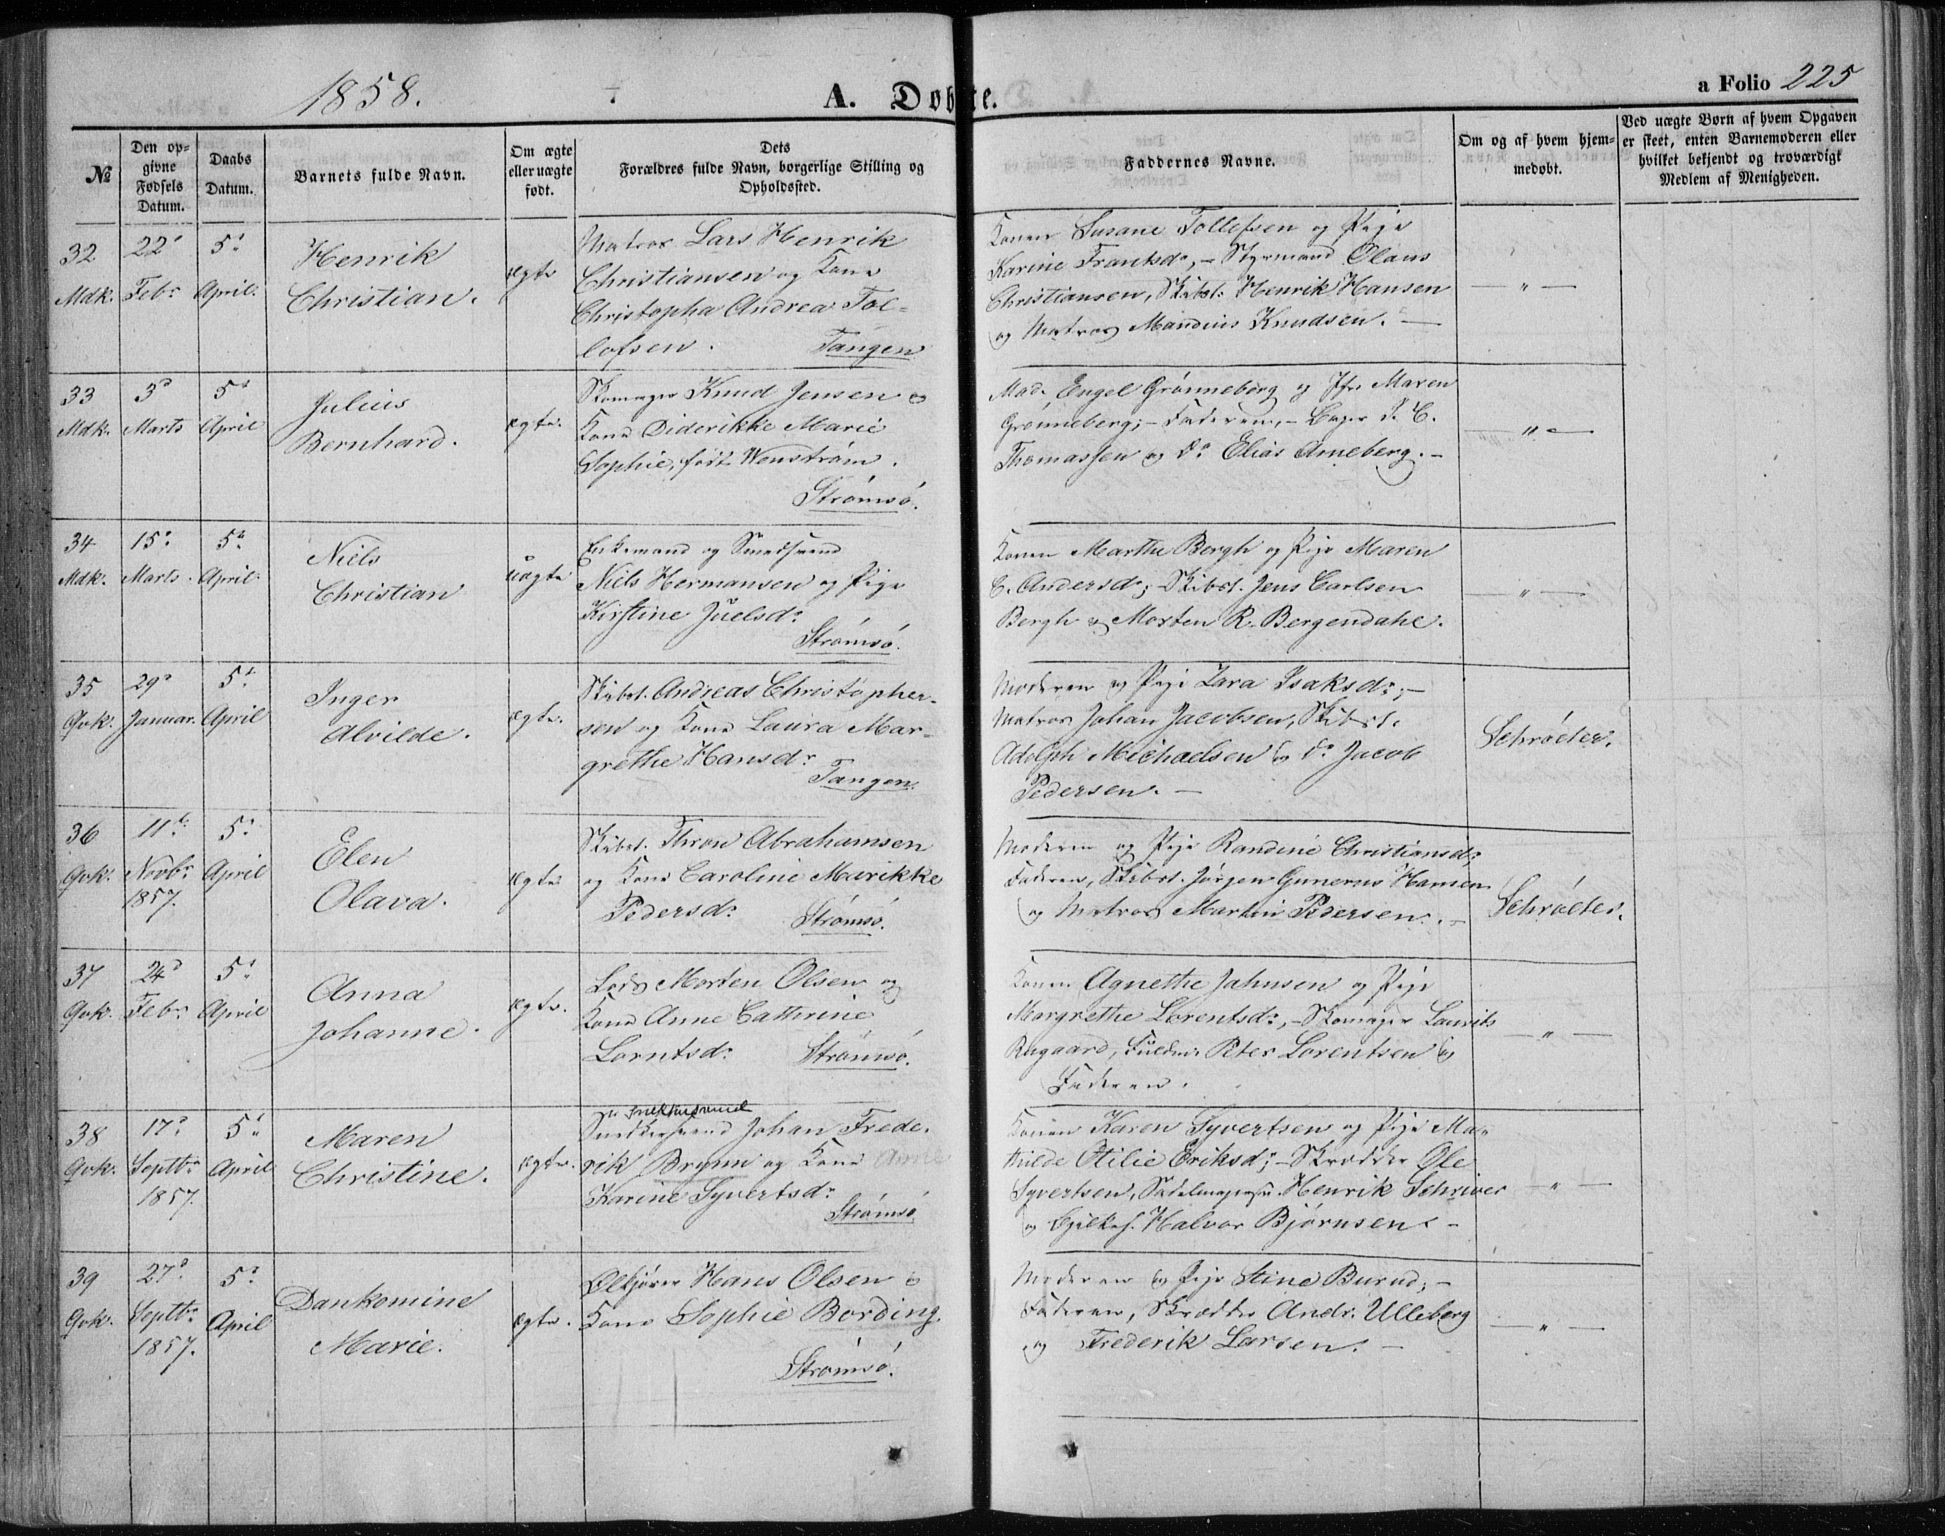 1858.
A. Døbte.
a Folio 225
№
Den opgivne Fødsels Datum.
Daabs Datum.
Barnets fulde Navn.
Om ægte eller uægte født.
Dets Forældres fulde Navn, borgerlige Stilling og Opholdssted.
Faddernes Navne.
Om og af hvem hjemmedøbt.
Ved uægte Børn af hvem Opgaven er skeet, enten Barnemoderen eller hvilket bekjendt og troværdigt Medlem af Menigheden.
32
Mdk.
22
Febr.
5
April.
Henrik
Christian.
ægte
Matros Lars Henrik
Christiansen og Kone
Christopha Andrea Tol-
lofsen. Tangen
Konen Susane Tollefsen og Pige
Karine Franksdr, - Styrmand Olaus
Christiansen, Skibst. Henrik Hansen
og Matros Mandius Knudsen. -
- " -
33
Mdk.
3d
Marts
5t
April
Julius
Bernhard.
ægte.
Skomager Knud Jensen og
Kone Diderikke Marie
Sophie, født Wenstrøm.
Strømsø.
Mad. Engel Grønneberg og Jfr Maren
Grønneberg; - Faderen, - Bager P. C.
Thomassen og do Elias Arneberg. -
- " -
34
Mdk.
15
Marts.
5t
April.
Niels
Christian
uægte
Enkemand og Smedsvend
Niels Hermansen og Pige
Kirstine Juelsdr
Strømsø.
Konen Marthe Bergh og Pige Maren
C. Andersdr; - Skibst. Jens Carlsen
Bergh og Morten R. Bergendahl.
- " -
35
Qvk.
29
Januar.
5t
April
Inger
Alvilde.
ægte.
Skibst. Andreas Christopher-
sen og Kone Laura Mar-
grethe Hansdr
Tangen.
Moderen og Pige Lara Isaksdr; -
Matros Johan Jacobsen, Skibst.
Adolph Michaelsen og do Jacob
Pedersen. -
Schrøeter.
36
Qvk.
11t
Novbr
1857.
5t
April
Elen
Olava.
ægte
Skibst. Thron Abrahamsen
og Kone Caroline Marikke
Pedersdr Strømsø.
Moderen og Pige Randine Christiansdr,
Faderen, Skibst. Jørgen Gunerus Hansen
og Matros Martin Pedersen. -
Schrøeter.
37
Qvk.
24d
Febr
5t
April
Anna
Johanne.
ægte.
Lods Morten Olsen og
Kone Anne Cathrine
Lorntsdr Strømsø.
Konen Agnethe Jahnsen og Pige
Margrethe Lorentsdr, - Skomager Laurits
Rugaard, Peter Lorentsen og
Faderen.
- " -
38
Qvk.
17
Septbr
1857.
5t
April
Maren
Christine.
ægte.
Snedkersvend
Snedkersvend Johan Frede-
rik Brynn og Kone Anne
Karine Syvertsdr
Strømsø
Konen Karen Syvertsen og Pige Ma-
thilde Otilie Eriksdr; - Skrædder Ole
Syvertsen, Sadelmagersv. Henrik Schriver
og Halvor Bjørnsen. -
- " -
39
Qvk.
27d
Septbr
1857.
5t
April
Dankomine
Marie.
ægte.
Hans Olsen og
Kone Sophie Bording.
Strømsø.
Moderen og Pige Stine Burud; -
Faderen, Skrædder Andr. Ulleberg
og Frederik Larsen. -
- " -